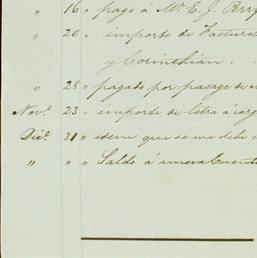 " 16 " pago á Mr. E. J. Perry
" 20 " importe de Factura
y Corinthian.
" 28 " pagado por pasage de
Nov.e 23 " importe de letra á carg
Dic.e 31 " idem que se me debe
" " " Saldo á nueva Cuent